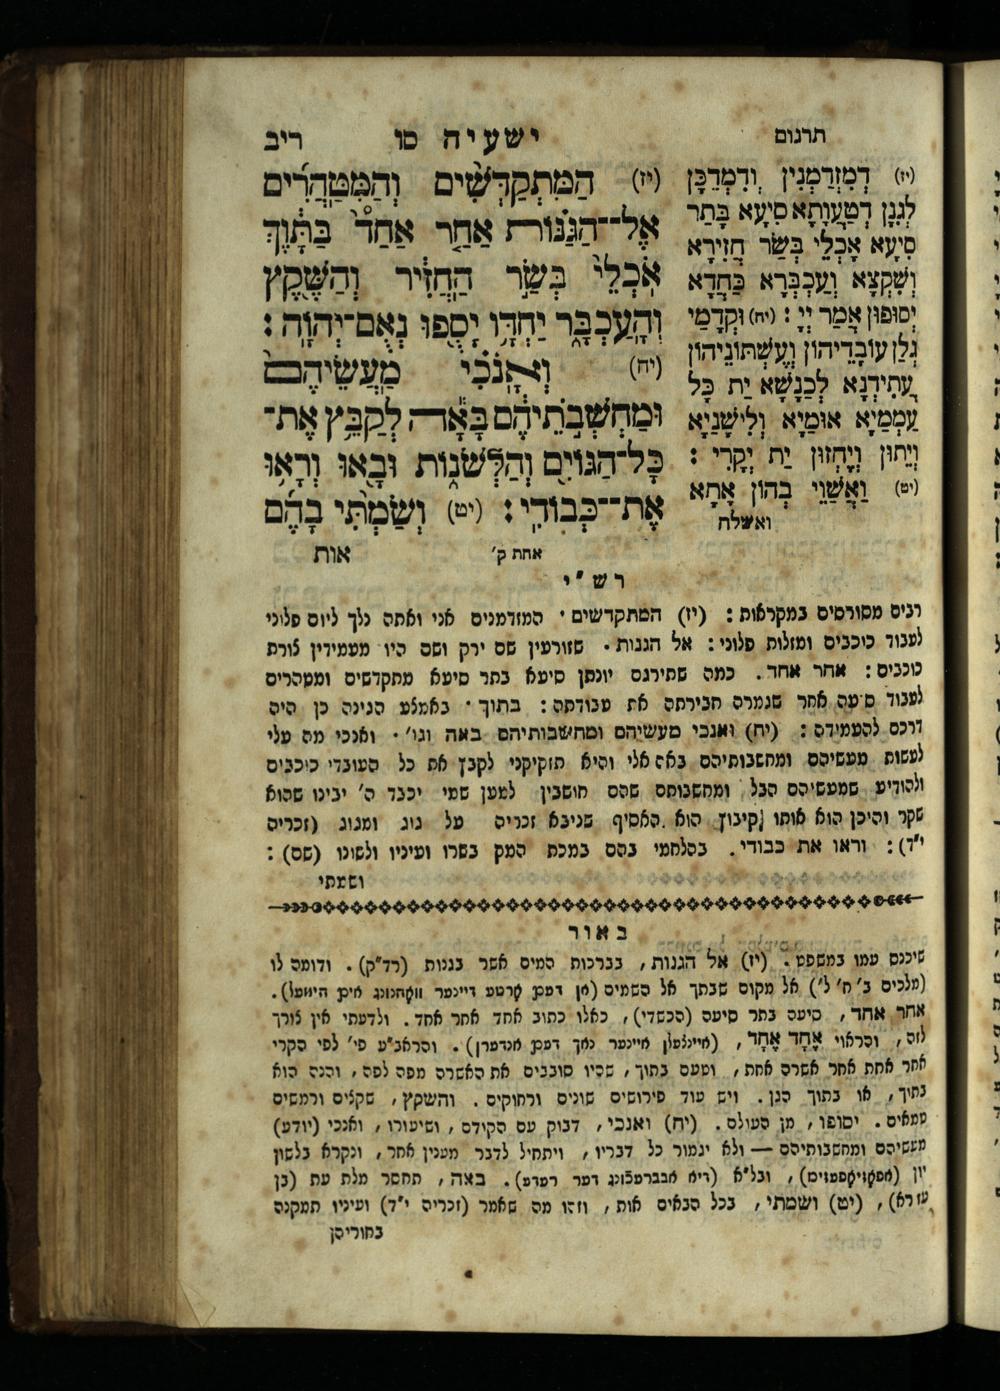 תרגום
ישעיה סו ריב
(יז) דְמִזְדַמְנִין וְדִמְדַכָּן
לְגִנָן דְטַעֲוָתָא סִיעָא בָּתַר
סִיעָא אָכְלֵי בְּשַׂר חֲזִירָא
וְשִׁקְצָא וְעַכְבְּרָא כַּחֲדָא
יְסוּפוּן אֲמַר יְיָ : (יח) וּקְדָמַי
גְלַן עוֹבָדֵיהוֹן וְעֶשְׁתּוֹנֵיהוֹן
עֲתִידְנָא לְכַנָשָׁא יַת כָּל
עַמְמַיָא אוּמַיָא וְלִישָׁנַיָא
וְיֵתוּן וְיֶחְזוּן יַת יְקָרִי :
(יט) וַאֲשַׁוֵי בְהוֹן אָתָא
ואשלח
(יז) הַמִּתְקַדְּשִׁים וְהַמִּטַּהֲרִים
אֶל־הַגַּנּוֹת אַחַר אַחַד בַּתָּוֶךְ
אֹכְלֵי בְּשַׂר הַחֲזִיר וְהַשֶּׁקֶץ
וְהָעַכְבָּר יַחְדָּו יָסֻפוּ נְאֻם־יְהוָה :
(יח) וְאָנֹכִי מַעֲשֵׂיהֶם
וּמַחְשְׁבֹתֵיהֶם בָּאָה לְקַבֵּץ אֶת־
כָּל־הַגּוֹיִם וְהַלְּשֹׁנוֹת וּבָאוּ וְרָאוּ
אֶת־כְּבוֹדִי : (יט) וְשַׂמְתִּי בָהֶם
אחת ק' אות
רש"י
רבים מסורסים במקראות : (יז) המתקדשים · המזדמנים אני ואתה נלך ליום פלוני
לעבוד כוכבים ומזלות פלוני : אל הגנות · שזורעין שם ירק ושם היו מעמידין צורת
כוכבים : אחר אחד . כמה שתירגם יונתן סיעא בתר סיעא מתקדשים ומטהרים
לעבוד סיעה אחר שגמרה חבירתה את עבודתה : בתוך · באמצע הגינה כן היה
דרכם להעמידה : (יח) ואנכי מעשיהם ומחשבותיהם באה וגו' · ואנכי מה עלי
לעשות מעשיהם ומחשבותיהם באה אלי והיא תזקיקני לקבץ את כל העובדי כוכבים
ולהודיע שמעשיהם הבל ומחשבותם שהם חושבין למען שמי יכבד ה' יבינו שהוא
שקר והיכן הוא אותו קיבוץ הוא האסיף שניבא זכריה על גוג ומגוג (זכריה
י"ד) : וראו את כבודי . בהלחמי בהם במכת המק בשרו ועיניו ולשונו (שם) :
ושמתי
באור
שיכנס עמו במשפט . (יז) אל הגנות , בברכות המים אשר בגנות (רד"ק) . ודומה לו
(מלכים ב' ח' ל') אל מקום שבתך אל השמים (אן דעם דיינער וואהנונג אים היממעל) .
אחר אחד , סיעה בתר סיעה (הכשדי) , כאלו כתוב אחד אחר אחד . ולדעתי אין צורך
לזה , והראוי אֶחָד אֶחָד , (איינצעלן איינער נאך דעם אנדערן) . והראב"ע פי' לפי הקרי
אחר אחת אחר אשרה אחת , וטעם בתוך , שהיו סובבים את האשרה מפה לפה , והנה הוא
בתוך , או בתוך הגן . ויש עוד פירושים שונים ורחוקים . והשקץ , שקצים ורמשים
טמאים . יסופו , מן העולם . (יח) ואנכי , דבוק עם הקודם , ושיעורו , ואנכי (יודע)
מעשיהם ומחשבותיהם — ולא יגמור כל דבריו , ויתחיל לדבר מענין אחר , ונקרא בלשון
יון , ובל"א (דיא אבברעכונג דער רעדע) . באה , תחסר מלת עת (בן
עזרא) , (יט) ושמתי , בכל הבאים אות , וזהו מה שאמר (זכריה י"ד) ועיניו תמקנה
בחוריהן